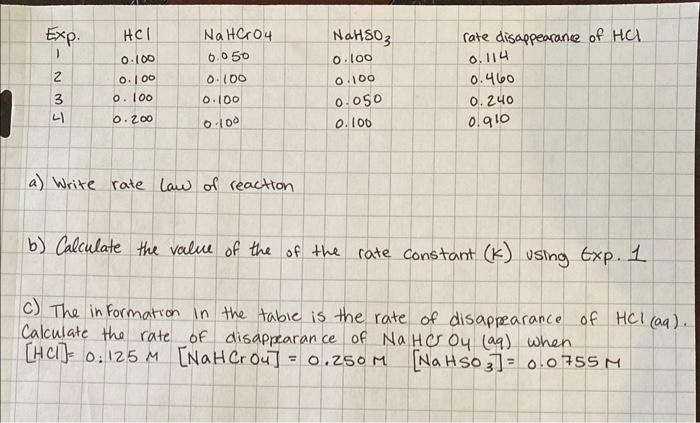 Exp. HCl NaHCrO4 NaHSO3 rate disappearance of HCl
1 0.100 0.050 0.100 0.114
2 0.100 0.100 0.100 0.460
3 0.100 0.100 0.050 0.240
4 0.200 0.100 0.100 0.910
a) Write rate law of reaction
b) Calculate the value of the of the rate constant (K) using Exp. 1
c) The information in the table is the rate of disappearance of HCl (aq).
Calculate the rate of disappearance of NaHCrO4 (aq) when
[HCl]= 0.125 M [NaHCrO4] = 0.250 M [NaHSO3] = 0.0755 M